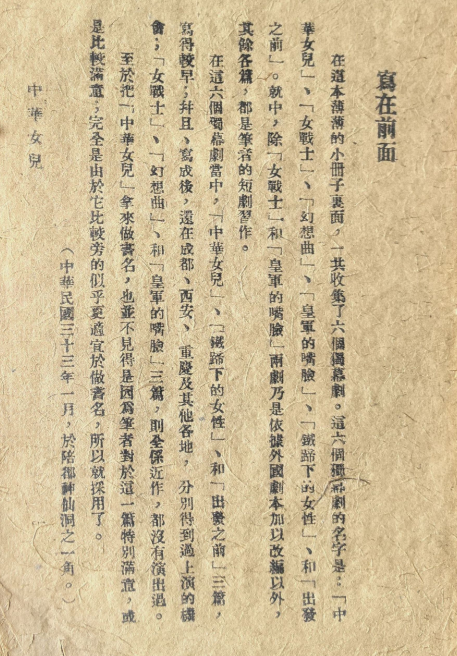 寫在前面
在這本薄薄的小冊子裏面，一共收集了六個獨幕劇。這六個獨幕劇的名字是：「中
華女兒」、「女戰士」、「幻想曲」、「皇軍的嘴臉」、「鐵蹄下的女性」、和「出發
之前」。就中，除「女戰士」和「皇軍的嘴臉」兩劇乃是依據外國劇本加以改編以外，
其餘各篇，都是筆者的短劇習作。
在這六個獨幕劇當中，「中華女兒」、「鐵蹄下的女性」、和「出發之前」三篇，
寫得較早；幷且、寫成後，還在成都、西安、重慶及其他各地，分別得到過上演的機
會；「女戰士」、「幻想曲」、和「皇軍的嘴臉」三篇，則全係近作，都沒有演出過。
至於把「中華女兒」拿來做書名，也並不見得是因爲筆者對於這一篇特別滿意，或
是比較滿意；完全是由於它比較旁的似乎更適宜於做書名，所以就採用了。
（中華民國三十三年一月，於陪都神仙洞之一角。）
中華女兒